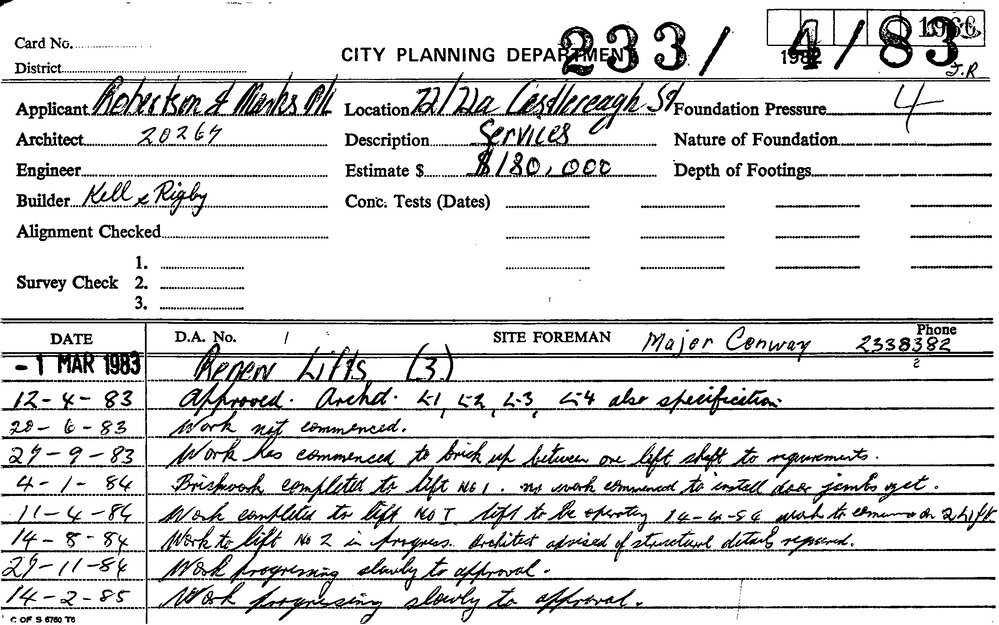 Card No.
233/4/83
1966
1982
CITY PLANNING DEPARTMENT
J.R
District
Applicant Robertson & Marks P/L Location 72/72a Castlereagh St Foundation Pressure 4
Architect 20267 Description Services Nature of Foundation
Engineer Estimate $ $180,000 Depth of Footings
Builder Kell & Rigby Conc. Tests (Dates)
Alignment Checked
1.
Survey Check 2.
3.
DATE D.A. No. / SITE FOREMAN Major Conway Phone 2338382
- 1 MAR 1983 Renew Lifts (3)
12-4-83 Approved. Archd. L1, L-2, L-3, L-4 also specification
20-6-83 Work not commenced.
27-9-83 Work has commenced to brick up between one left shaft to requirements.
4-1-84 Brickwork completed to lift No 1. no work commenced to install door jambs yet.
11-4-84 Work completed to lift No 1 lift to be operating 14-4-84 work to commence on 2 Lift
14-8-84 Work to lift No 2 in progress. Architect advised of structural details required.
29-11-84 Work progressing slowly to approval.
14-2-85 Work progressing slowly to approval.
C OF S 6760 T6